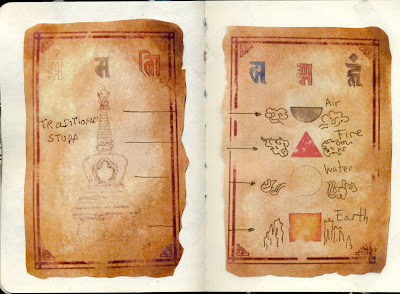 TRADITIONAL
STUPA
Air
Fire
Water
Earth